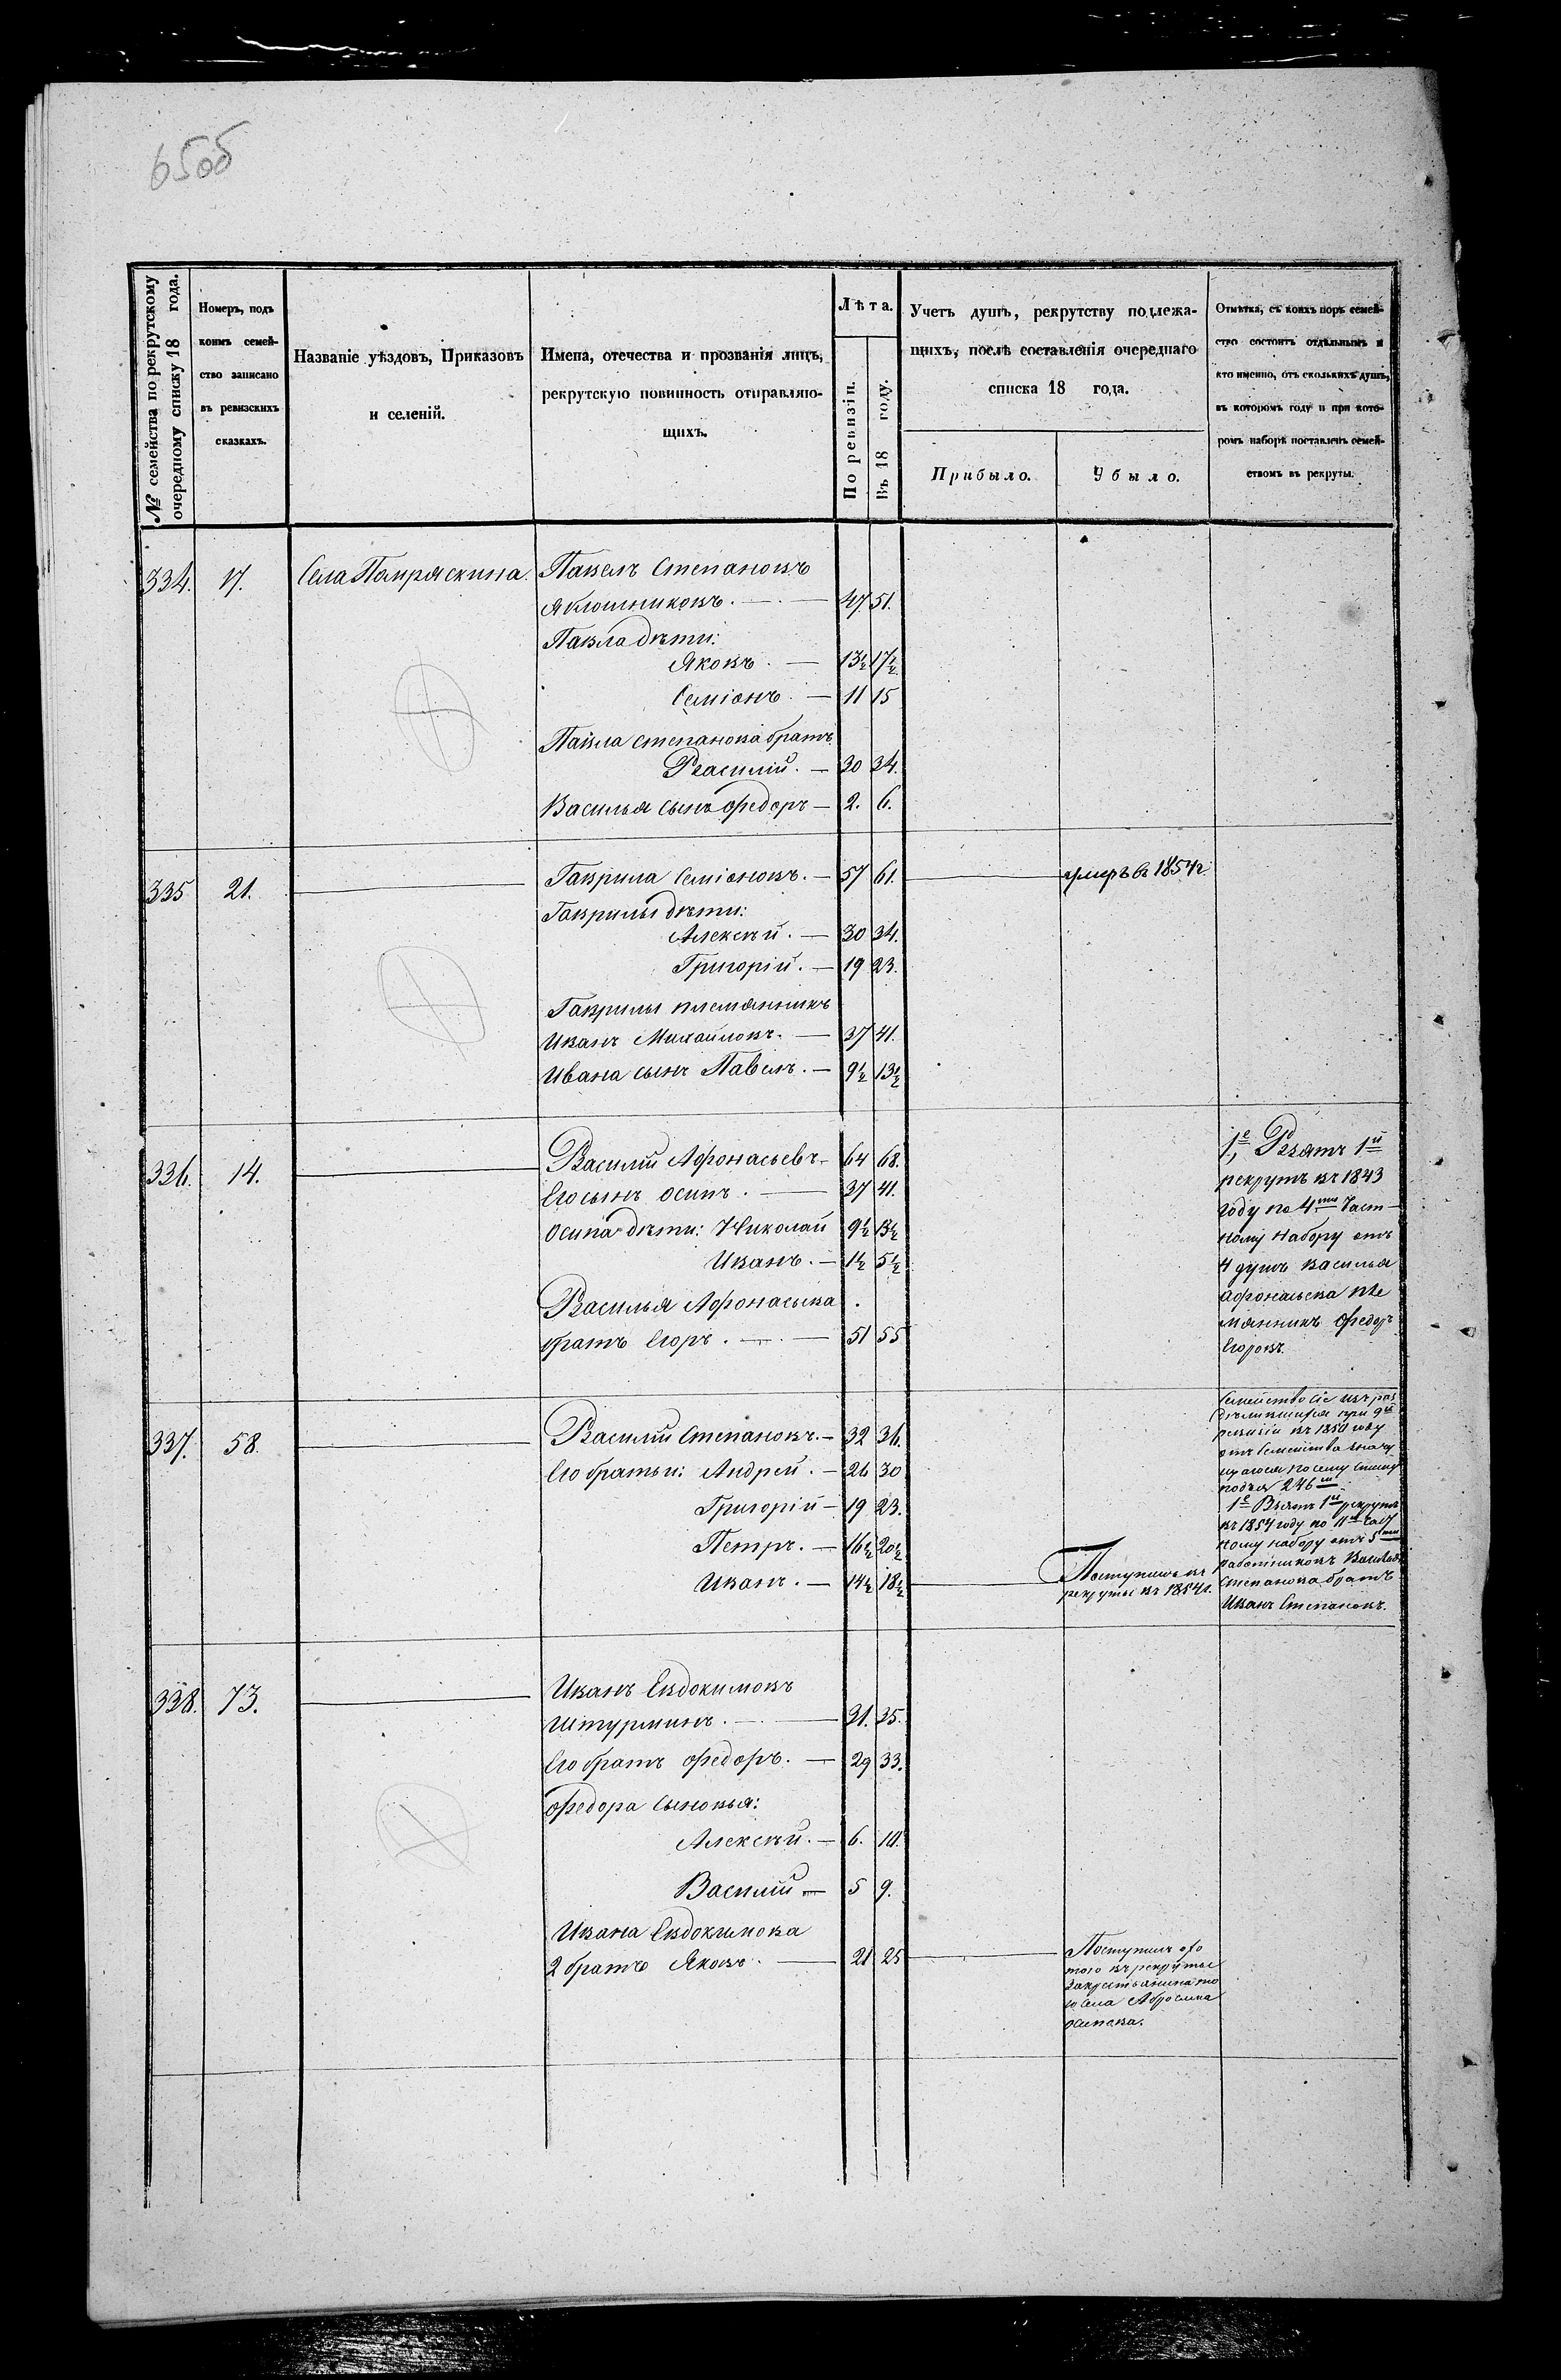 650б
№ семейства по рекрутскому
очередному списку 18 года.
Номеръ, подъ
коимъ семей-
ство записано
въ ревизскихъ
сказкахъ.
Названіе уѣздовъ, Приказовъ
и селеній.
Имена, отечества и прозванія лицъ,
рекрутскую повинность отправляю-
щихъ.
Лѣта.
По ревизіи.
Въ 18 году.
Учетъ душъ, рекрутству подлежа-
щихъ, послѣ составленія очереднаго
списка 18 года.
Прибыло.
Убыло.
Отмѣтка, съ коихъ поръ семей-
ство состоитъ отдѣльнымъ и
кто именно, отъ сколькихъ душъ,
въ которомъ году и при кото-
ромъ наборѣ поставленъ семей-
ствомъ въ рекруты.
334. 17. Села Помряскина. Павелъ Степановъ
Яблошниковъ. — 47 51.
Павла дѣти:
Яковъ. — 13½ 17½
Семіонъ. — 11 15
Павла Степанова братъ
Василій. — 30 34.
Василья сынъ Федоръ — 2. 6.
335 21. — Гаврила Семіоновъ. — 57 61. — умеръ въ 1854 г.
Гаврилы дѣти:
Алексѣй. — 30 34.
Григорій. — 19 23.
Гаврилы племянникъ
Иванъ Михайловъ. — 37 41.
Ивана сынъ Павелъ. — 9½ 13½
336. 14. — Василій Афонасьевъ — 64 68.
Его сынъ Осипъ. — 37 41.
Осипа дѣти: Николай 9½ 13½
Иванъ. — 1½ 5½
Василья Афонасьева
братъ Егоръ. — 51 55
1е, Взятъ 1й
рекрутъ въ 1843
году по 4му Част-
ному набору отъ
4 душъ Василья
Афонасьева пле
мянникъ Федоръ
Егоровъ.
337. 58. — Василій Степановъ. — 32 36.
Его братьи: Андрей. — 26 30
Григорій — 19 23.
Петръ. — 16½ 20½
Иванъ. — 14½ 18½ — Поступилъ въ
рекруты въ 1854 г.
Семейство сіе изъ раз
дѣлившихся при 9й
ревизіи въ 1850 году
отъ семейства знача
щагося по сему списку
подъ № 246м.
1е Взятъ 1й рекрутъ
въ 1854 году по 11му Част
ному набору отъ 5ти
работниковъ Василья
Степанова братъ
Иванъ Степановъ.
338. 73. — Иванъ Евдокимовъ
Штурминъ. — 31. 35.
Его братъ Федоръ. — 29 33.
Федора сыновья:
Алексѣй. — 6. 10.
Василій — 5 9.
Ивана Евдокимова
2 братъ Яковъ. — 21 25 — Поступилъ охо
тою въ рекруты
за крестьянина то
го села Абросима
Осипова.